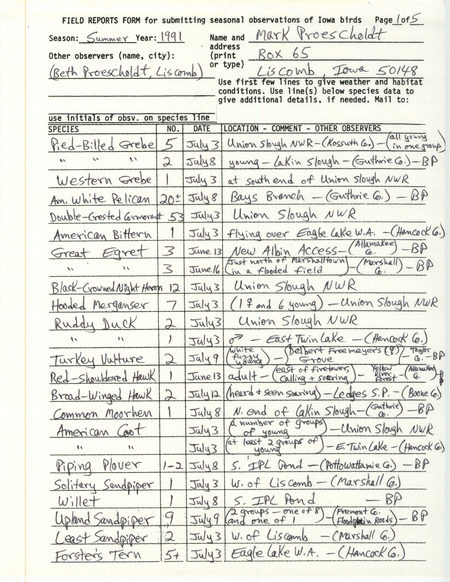 FIELD REPORTS FORM for submitting seasonal observations of Iowa birds Page 1 of 5
Season: Summer Year: 1991 Name and Mark Proescholdt
address
Other observers (name, city): (print Box 65
or type)
(Beth Proescholdt, Liscomb) Liscomb, Iowa 50148
Use first few lines to give weather and habitat
conditions. Use line(s) below species data to
give additional details, if needed. Mail to:
use initials of obsv. on species line
SPECIES NO. DATE LOCATION - COMMENT - OTHER OBSERVERS
Pied-Billed Grebe 5 July 3 Union Slough NWR - (Kossuth Co.) - (all young in one group)
" " " 2 July 8 young - Lakin Slough - (Guthrie Co.) - BP
Western Grebe 1 July 3 at south end of Union Slough NWR
Am. White Pelican 20± July 8 Bays Branch - (Guthrie Co.) - BP
Double-Crested Cormorant 53 July 3 Union Slough NWR
American Bittern 1 July 3 flying over Eagle Lake W.A. - (Hancock Co.)
Great Egret 3 June 13 New Albin Access - (Allamakee Co.) - BP
" " 3 June 16 (just north of Marshalltown in a flooded field) - (Marshall Co.) - BP
Black-Crowned Night Heron 12 July 3 Union Slough NWR
Hooded Merganser 7 July 3 (1 ♀ and 6 young) - Union Slough NWR
Ruddy Duck 2 July 3 Union Slough NWR
" " 1 July 3 ♂ - East Twin Lake - (Hancock Co.)
Turkey Vulture 2 July 9 white fuzzy young - (Delbert Freemeyer's Grove) - Taylor Co. - BP
Red-Shouldered Hawk 1 June 13 adult - (east of firetower, calling + soaring) - Yellow River Forest - (Allamakee Co.) - BP
Broad-Winged Hawk 2 July 12 (heard + seen soaring) - Ledges S.P. - (Boone Co.)
Common Moorhen 1 July 8 N. end of Lakin Slough - (Guthrie Co.) - BP
American Coot July 3 (a number of groups of young) - Union Slough NWR
" " July 3 (at least 2 groups of young) - E. Twin Lake - (Hancock Co.)
Piping Plover 1-2 July 8 S. IPL Pond - (Pottawattamie Co.) - BP
Solitary Sandpiper 1 July 3 W. of Liscomb - (Marshall Co.)
Willet 1 July 8 S. IPL Pond - BP
Upland Sandpiper 9 July 9 (2 groups - one of 8 and one of 1) - (Fremont Co. Floodplain Roads) - BP
Least Sandpiper 2 July 3 W. of Liscomb - (Marshall Co.)
Forster's Tern 5+ July 3 Eagle Lake W.A. - (Hancock Co.)